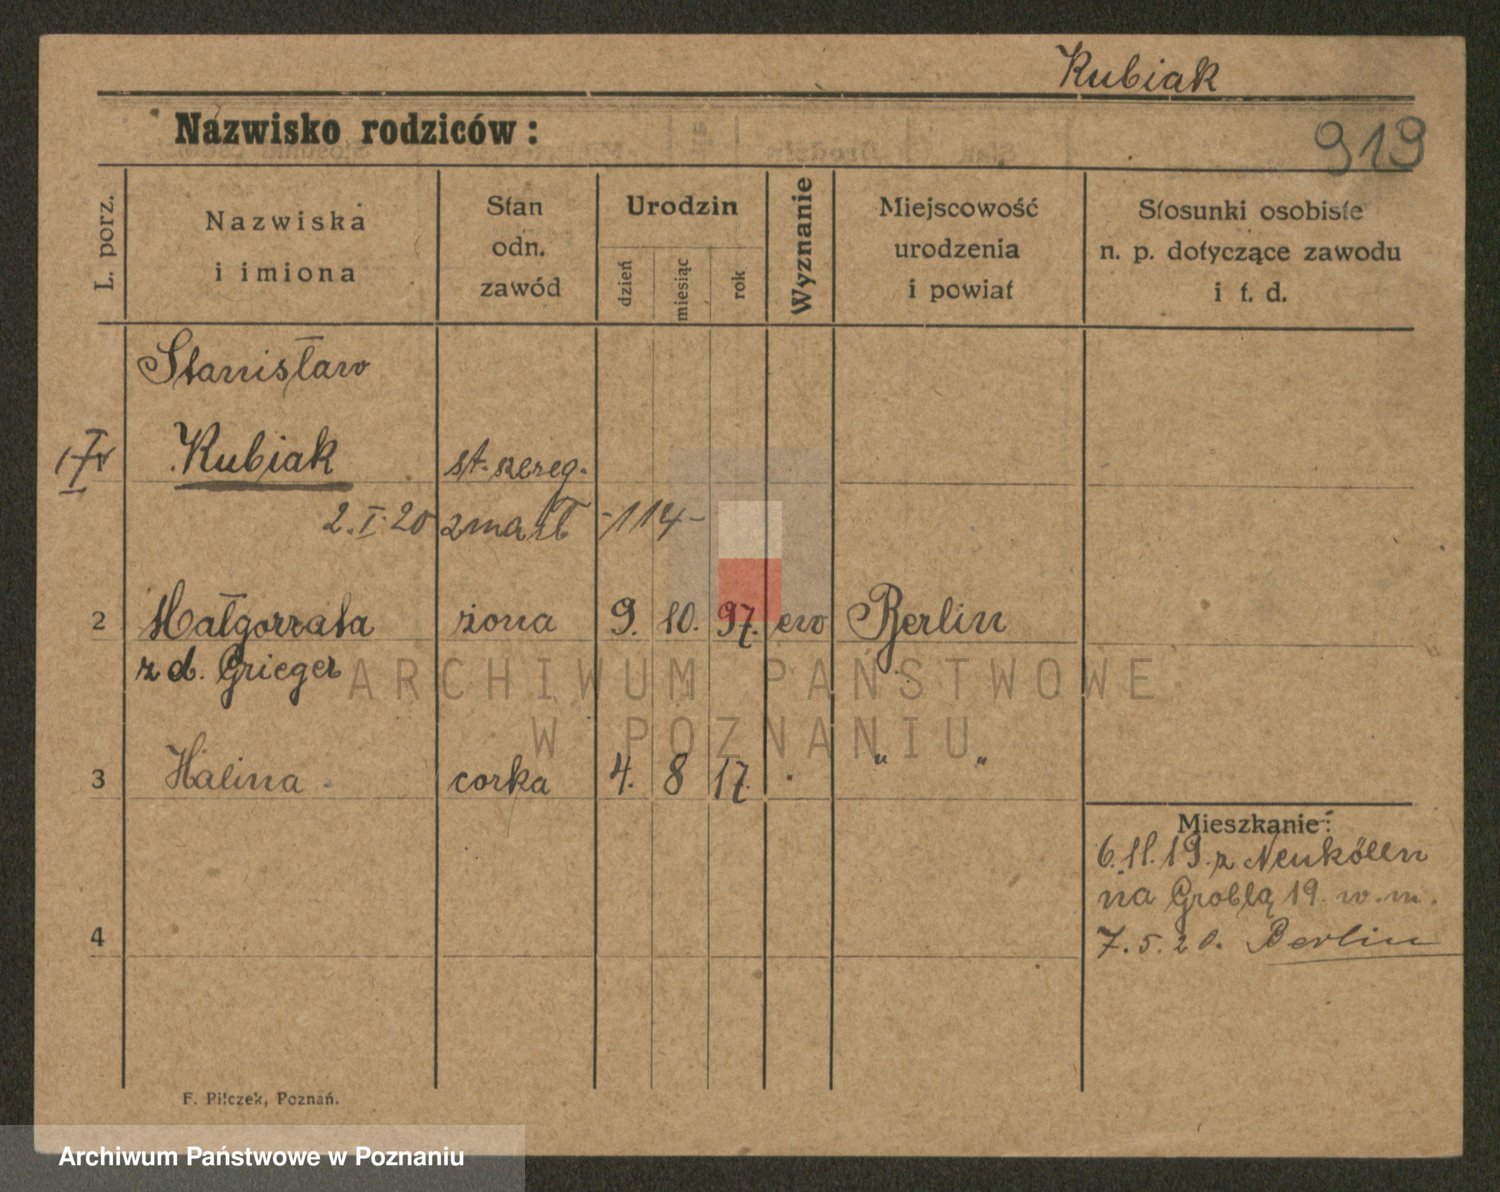 Kubiak
Nazwisko rodziców:
919
L. porz.
Nazwiska
i imiona
Stan
odn.
zawód
Urodzin
dzień
miesiąc
rok
Wyznanie
Miejscowość
urodzenia
i powiat
Stosunki osobiste
n. p. dotyczące zawodu
i t. d.
Stanisław
Kubiak st. szereg.
2. I. 20 zmarł -114-
2 Małgorzata żona 9. 10. 97. ew Berlin
z d. Grieger
3 Halina corka 4. 8 17. " "
Mieszkanie:
6.11.19. z Neukölln
na Groblą 19. w. m.
4
7.5.20. Berlin
F. Pilczek, Poznań.
ARCHIWUM PAŃSTWOWE
W POZNANIU
Archiwum Państwowe w Poznaniu